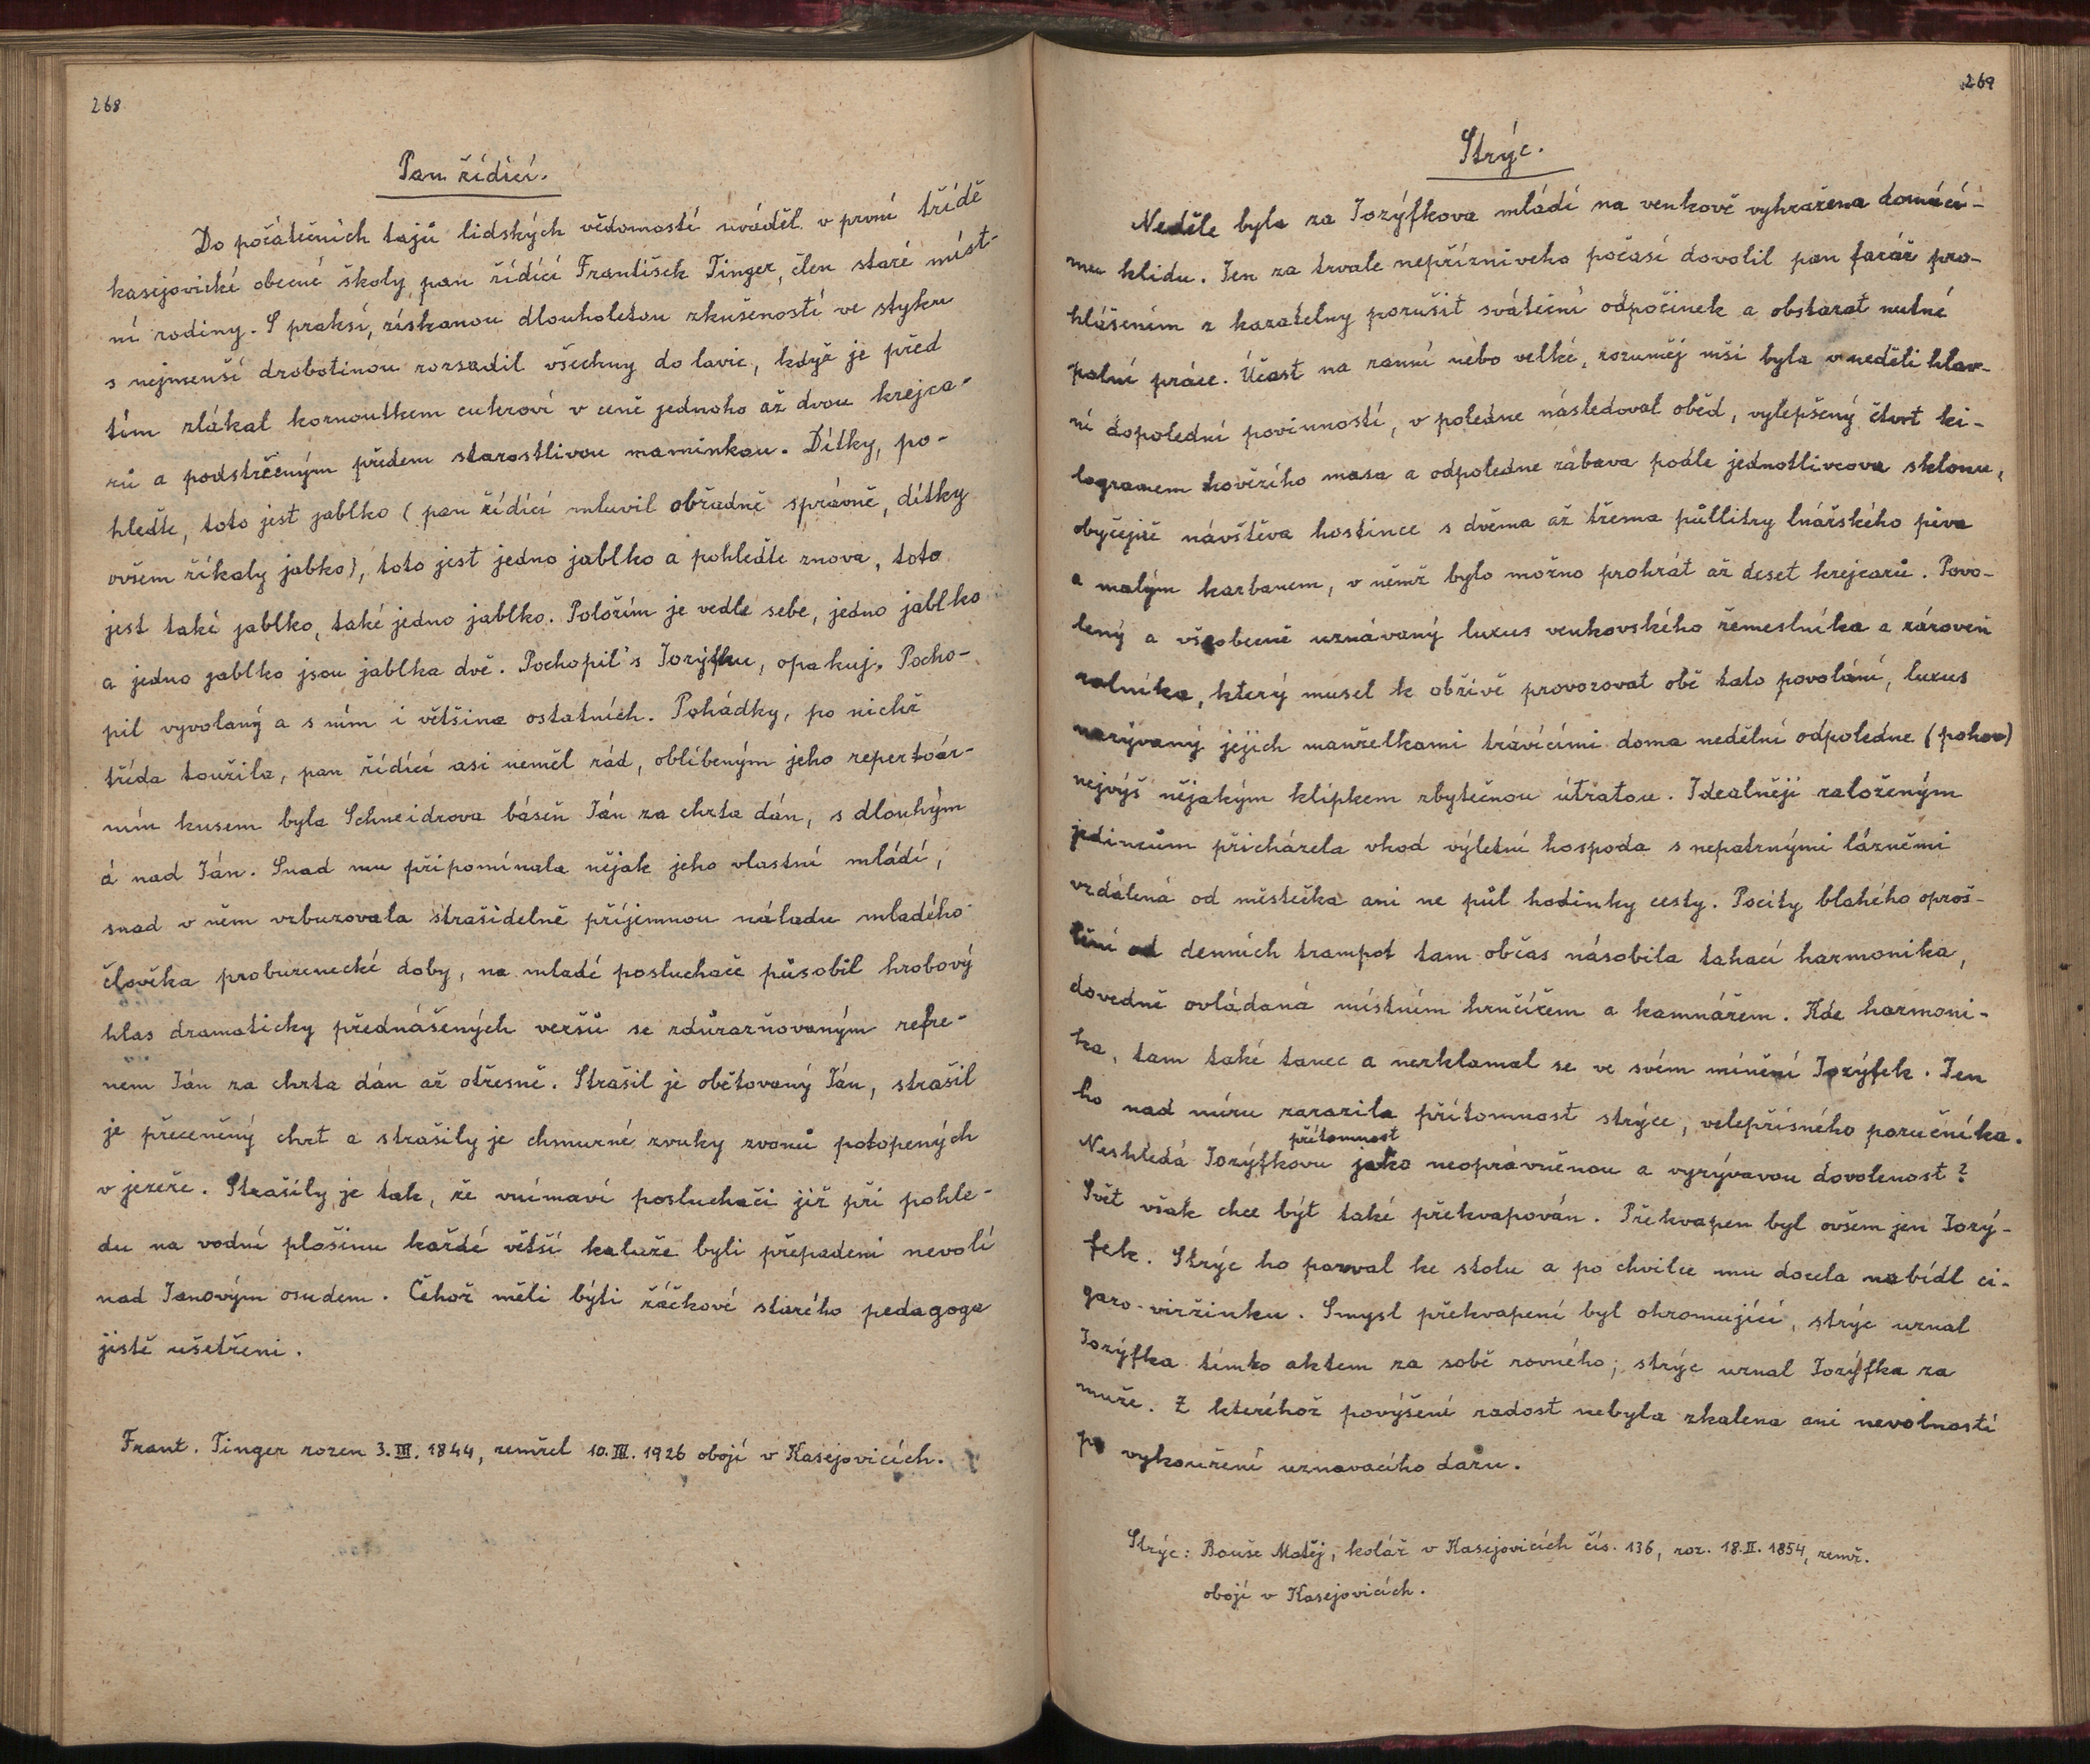 268
Pan řídící.
Do počátečních tajů lidských vědomostí uváděl v první třídě
kasejovické obecné školy pan řídící František Tinger, člen staré míst-
ní rodiny. S praksí, získanou dlouholetou zkušeností ve styku
s nejmenší drobotinou rozsadil všechny do lavic, když je před
tím zlákal kornoutkem cukroví v ceně jednoho až dvou krejca-
rů a podstrčeným předem starostlivou maminkou. Dítky, po-
hleďte, toto jest jablko (pan řídící mluvil obřadně správně, dítky
ovšem říkaly jabko), toto jest jedno jablko a pohleďte znova, toto
jest také jablko, také jedno jablko. Položím je vedle sebe, jedno jablko
a jedno jablko jsou jablka dvě. Pochopil's Jozýfku, opakuj. Pocho-
pil vyvolaný a s ním i většina ostatních. Pohádky, po nichž
třída toužila, pan řídící asi neměl rád, oblíbeným jeho repertoár-
ním kusem byla Schneidrova báseň Ján za chrta dán, s dlouhým
á nad Ján. Snad mu připomínala nějak jeho vlastní mládí,
snad v něm vzbuzovala strašidelně příjemnou náladu mladého
člověka probuzenecké doby, na mladé posluchače působil hrobový
hlas dramaticky přednášených veršů se zdůrazňovaným refre-
nem Ján za chrta dán až otřesně. Strašil je obětovaný Ján, strašil
je přeceněný chrt a strašily je chmurné zvuky zvonů potopených
v jezeře. Strašily je tak, že vnímaví posluchači již při pohle-
du na vodní plošinu každé větší kaluže byli přepadeni nevolí
nad Janovým osudem. Čehož měli býti žáčkové starého pedagoga
jistě ušetřeni.
Frant. Tinger rozen 3.III.1844, zemřel 10.III.1926 obojí v Kasejovicích.
269
Strýc.
Neděle byla za Jozýfkova mládí na venkově vyhražena domácí-
mu klidu. Jen za trvale nepříznivého počasí dovolil pan farář pro-
hlášením z kazatelny porušit sváteční odpočinek a obstarat nutné
polní práce. Účast na ranní nebo velké, rozuměj mši byla v neděli hlav-
ní dopolední povinností, v poledne následoval oběd, vylepšený čtvrt ki-
logramem hovězího masa a odpoledne zábava podle jednotlivcova sklonu,
obyčejně návštěva hostince s dvěma až třema půllitry lnářského piva
a malým karbanem, v němž bylo možno prohrát až deset krejcarů. Povo-
lený a všeobecně uznávaný luxus venkovského řemeslníka a zároveň
rolníka, který musel k obživě provozovat obě tato povolání, luxus
nazývaný jejich manželkami trávícími doma nedělní odpoledne (pohov)
nejvýš nějakým klípkem zbytečnou útratou. Idealněji založeným
jedincům přicházela vhod výletní hospoda s nepatrnými lázněmi
vzdálená od městečka ani ne půl hodinky cesty. Pocity blahého oproš-
tění od denních trampot tam občas násobila tahací harmonika,
dovedně ovládaná místním hrnčířem a kamnářem. Kde harmoni-
ka, tam také tanec a nezklamal se ve svém mínění Jozýfek. Jen
ho nad míru zarazila přítomnost strýce, velepřísného poručníka.
přítomnost
Neshledá Jozýfkovu jako neoprávněnou a vyzývavou dovolenost?
Svět však chce být také překvapován. Překvapen byl ovšem jen Jozý-
fek. Strýc ho pozval ke stolu a po chvilce mu docela nabídl ci-
garo-viržinku. Smysl překvapení byl ohromující, strýc uznal
Jozýfka tímto aktem za sobě rovného; strýc uznal Jozýfka za
muže. Z kteréhož povýšení radost nebyla zkalena ani nevolností
po vykouření uznavacího daru.
Strýc: Bouše Matěj, kolář v Kasejovicích čís. 136, roz. 18.II.1854, zemř.
obojí v Kasejovicích.